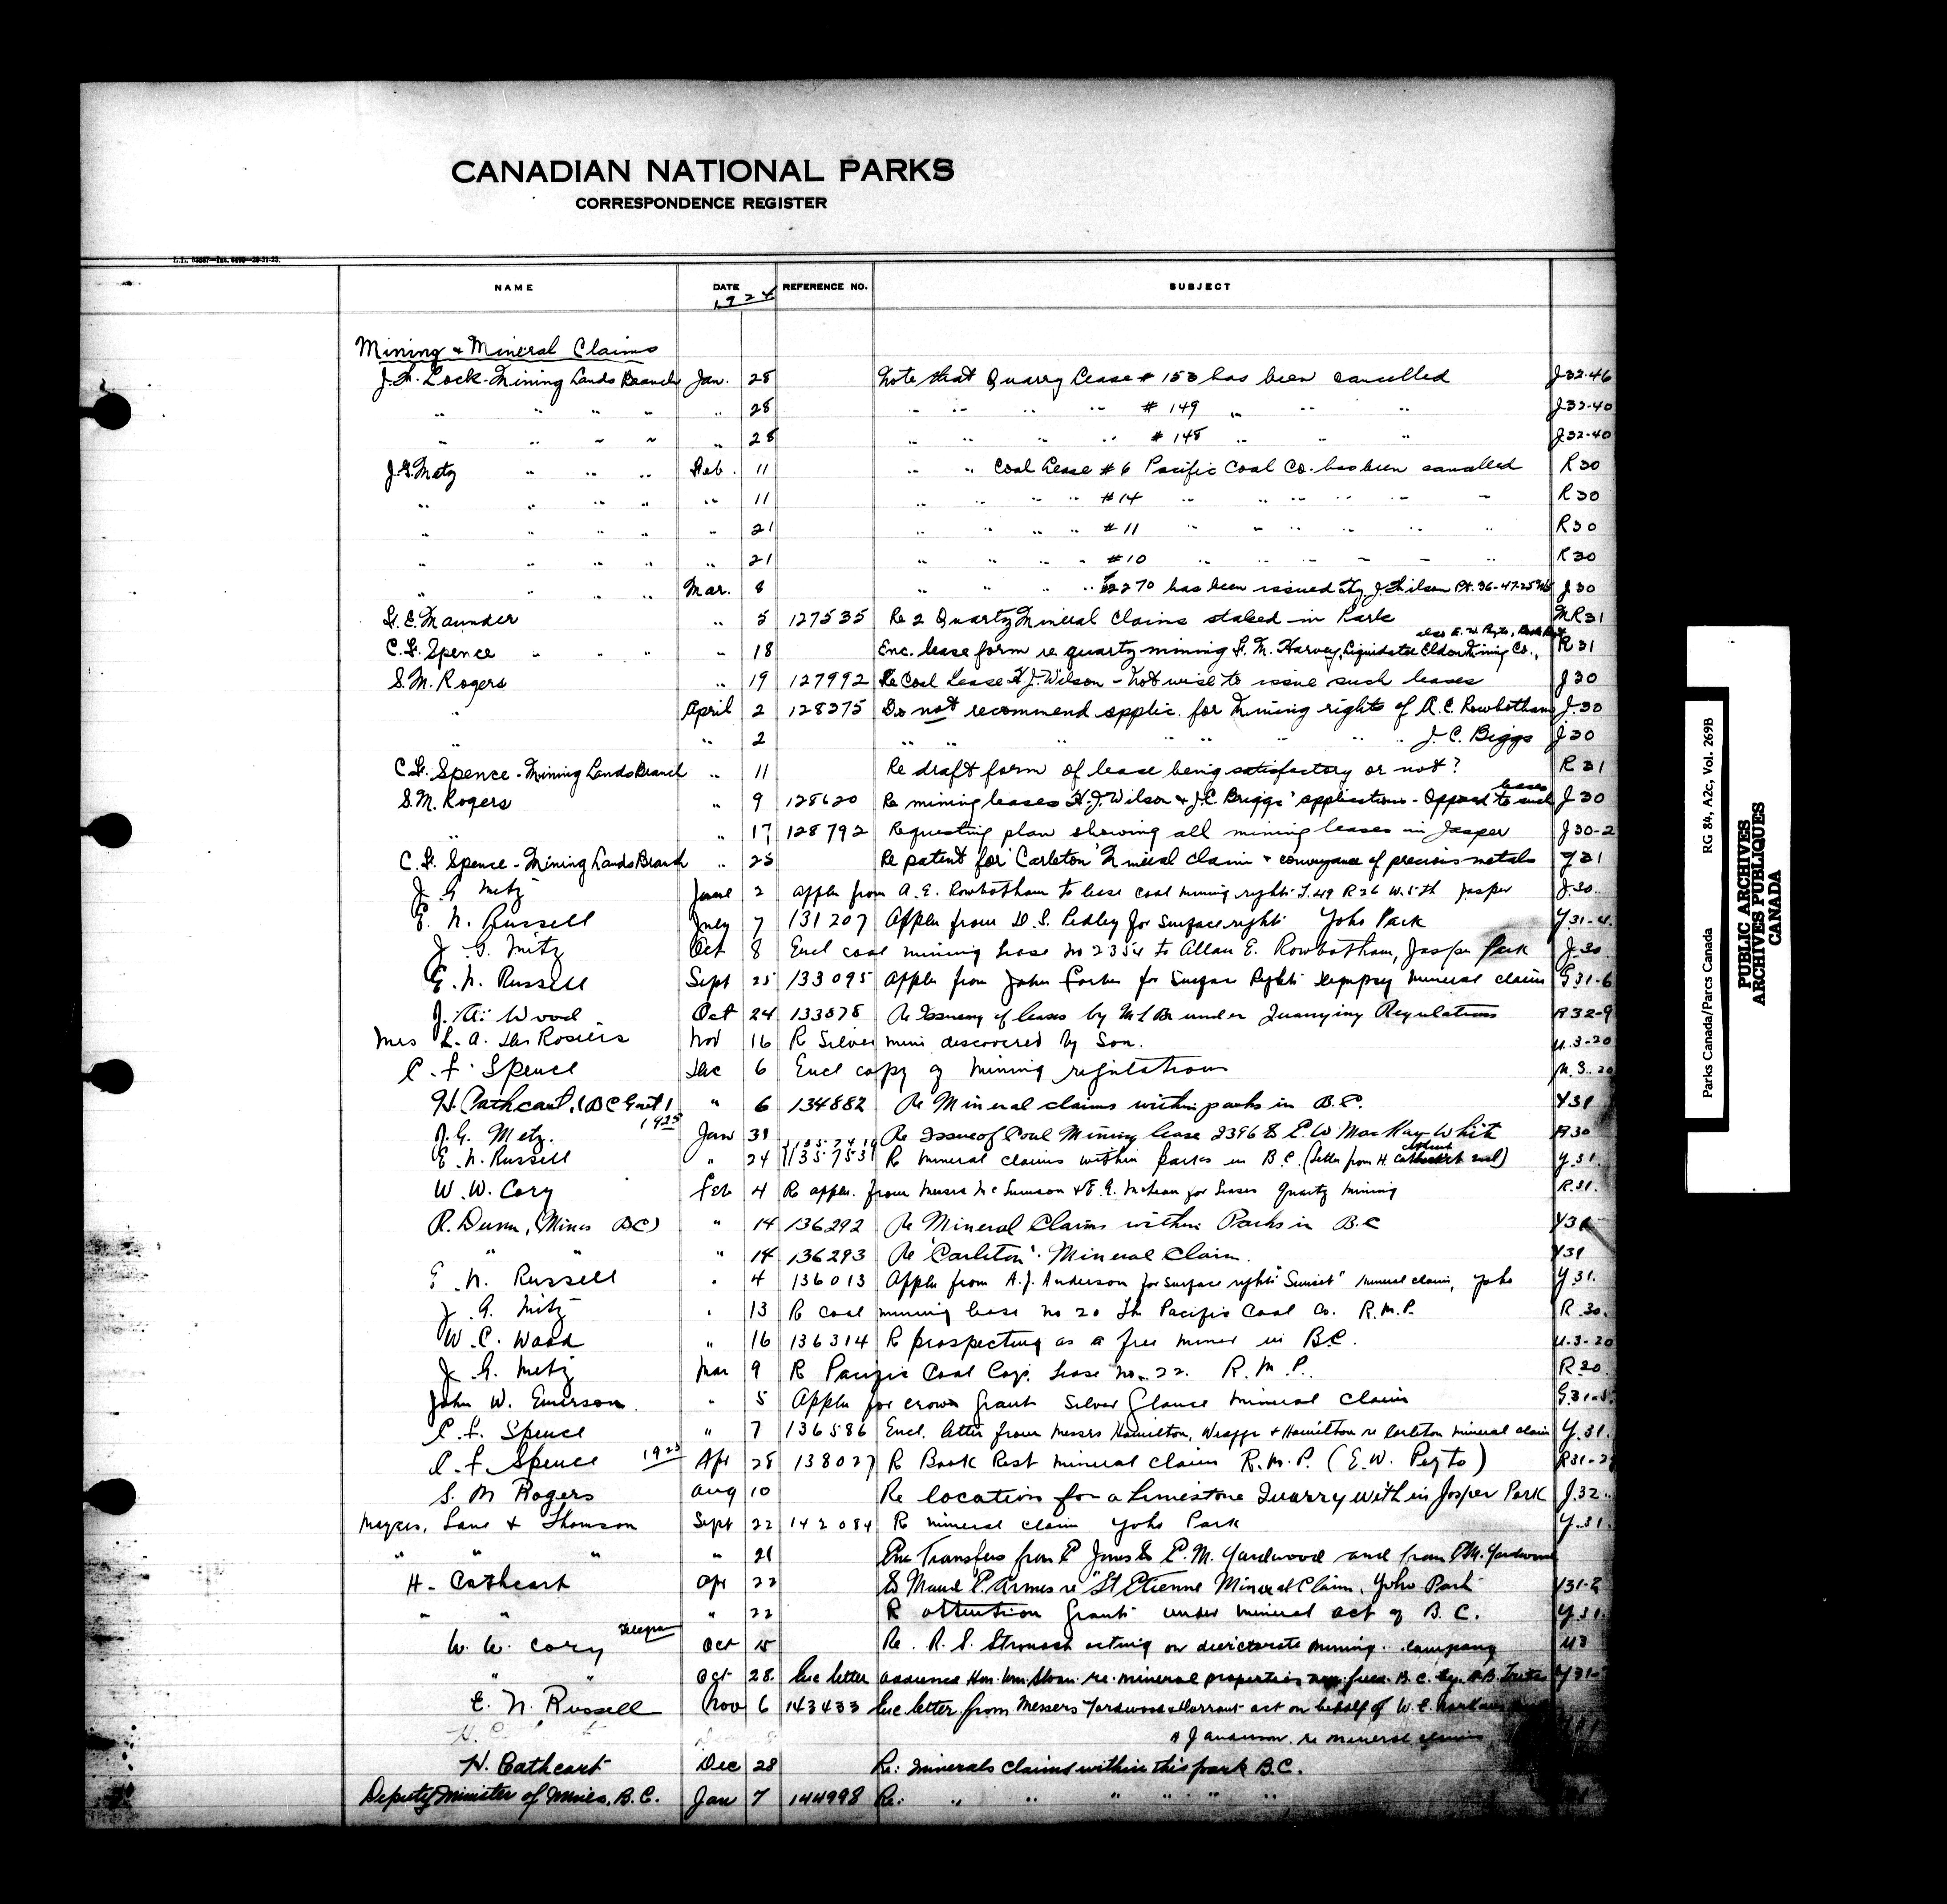 CANADIAN NATIONAL PARKS
CORRESPONDENCE REGISTER
NAME DATE REFERENCE NO. SUBJECT
1924
Mining & Mineral Claims
Lock - Mining Lands Branch Jan. 28 Note that Quarry Lease # 153 has been cancelled J32-46
" " " " " 28 " " " " # 149 " " " J32-40
" " " " " 28 " " " " # 148 " " " J32-40
J.G. Metz " " " Feb. 11 " " Coal Lease # 6 Pacific Coal Co. has been cancelled R30
" " " " " 11 " " " " # 14 " " " " " " R30
" " " " " 21 " " " " # 11 " " " " " " R30
" " " " " 21 " " " " # 10 " " " " " " R30
" " " " Mar. 8 " " " " 2270 has been issued J. Wilson Pt. 36-47-25 J30
Maunder " 5 127535 Re 2 Quartz Mineral Claims staked in Park MR31
also E.W. Peyto,
C.F. Spence " " " " 18 Enc. lease form re quartz mining F.M. Harvey, Liquidator Eldon Mining Co., R31
S.M. Rogers " 19 127992 Re Coal Lease H.J. Wilson - Not wise to issue such leases J30
" April 2 128375 Do not recommend applic. for Mining rights of A.E. Rowbotham J.30
" " 2 " " " " " " " " J.C. Biggs J30
C.F. Spence - Mining Lands Branch " 11 Re draft form of lease being satisfactory or not? R31
leases
S.M. Rogers " 9 128620 Re mining leases H.J. Wilson & J.C. Briggs' applications - Opposed to such J30
" " 17 128792 Requesting plan showing all mining leases in Jasper J30-2
C.F. Spence - Mining Lands Branch " 25 Re patent for 'Carleton' Mineral Claim & conveyance of precious metals Y31
J G Metz June 2 Appln from A.E. Rowbotham to lease coal mining rights T.49 R26 W.5th Jasper J.30
E. N. Russell July 7 131207 Appln from D.S. Pedley for surface rights Yoho Park Y.31-4
J. G. Metz Oct 8 Encl coal mining lease no 2354 to Allan E. Rowbotham, Jasper Park J.30
E. N. Russell Sept 25 133095 Appln from John Forbes for Surface Rights Dempsey mineral claim G31-6
J. A. Wood Oct 24 133878 Re Issueing of leases by MLB under Quarrying Regulations R32-9
Mrs L. A. Des Rosiers Nov 16 Re Silver mine discovered by Son. U.3-20
C. F. Spence Dec 6 Encl copy of mining regulations U.3-20
H. Cathcart, (BC Govt) " 6 134882 Re Mineral claims within parks in B.C. Y31
1925
J. G. Metz. Jan 31 Re Issue of Coal Mining lease 2396 to E.W. MacKay-White R30
E. N. Russell " 24 135753 Re mineral claims within parks in B.C. (letter from H. Cathcart encl) Y.31
W. W. Cory Feb 4 Re appln. from Messrs & E.A. McLean for leases Quartz Mining R.31.
R. Dunn, (Mines BC) " 14 136292 Re Mineral Claims within Parks in BC Y31
" " " 14 136293 Re 'Carleton' Mineral Claim. Y31
E. N. Russell " 4 136013 Appln from A.J. Anderson for surface rights "Sunset" mineral claim, Yoho Y.31.
J. G. Metz " 13 Re coal mining lease no 20 The Pacific Coal Co. R.M.P. R.30.
W. C. Wood " 16 136314 Re prospecting as a free miner in B.C. U.3-20
J. G. Metz Mar 9 Re Pacific Coal Co's. lease no. 22. R.M.P. R.30
John W. Emerson. " 5 Appln for crown Grant Silver Glance mineral claim G.31-5
C. F. Spence " 7 136586 Encl. letter from Messrs Hamilton, Wragge & Hamilton re Carleton mineral claim Y.31.
C. F. Spence 1925 Apr 28 138027 Re Book Rest mineral claim R.M.P. (E.W. Peyto) R31-2
S. M Rogers Aug 10 Re location for a Limestone Quarry within Jasper Park J.32
Lane & Thomson Sept 22 142084 Re mineral claim Yoho Park Y.31.
" " " " 21 Enc Transfers from E Jones to E.M. Yardwood and from E.M. Yardwood
H. Cathcart Apr 22 to Maud E. Armes re "St Etienne Mineral Claim, Yoho Park Y31-2
" " " 22 Re Grants under mineral act of B.C. Y.31.
W. W. Cory Telegram Oct 15 Re. R.S. Stronach acting on directorate mining company U3
" " Oct 28 Enc letter addressed Hon. Wm. Sloan re mineral properties B.C. by Y31
E. N. Russell Nov 6 143433 Enc letter from Messers Yardwood & Durrant act on behalf of W.E.
A J Anderson. re mineral claims
H. Cathcart Dec 28 Re: minerals claims within this park B.C.
Deputy Minister of Mines, B.C. Jan 7 144998 Re: " " " " " "
Parks Canada/Parcs Canada RG 84, A2c, Vol. 269B
PUBLIC ARCHIVES
ARCHIVES PUBLIQUES
CANADA